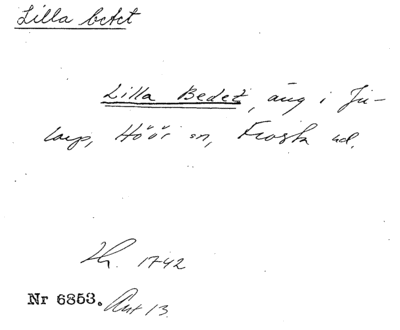 Lilla betet
Lilla Bedet, äng i Ju-
larp, Höör sn, Frosta hd.
Lh. 1742
Nr 6853. Akt 13.